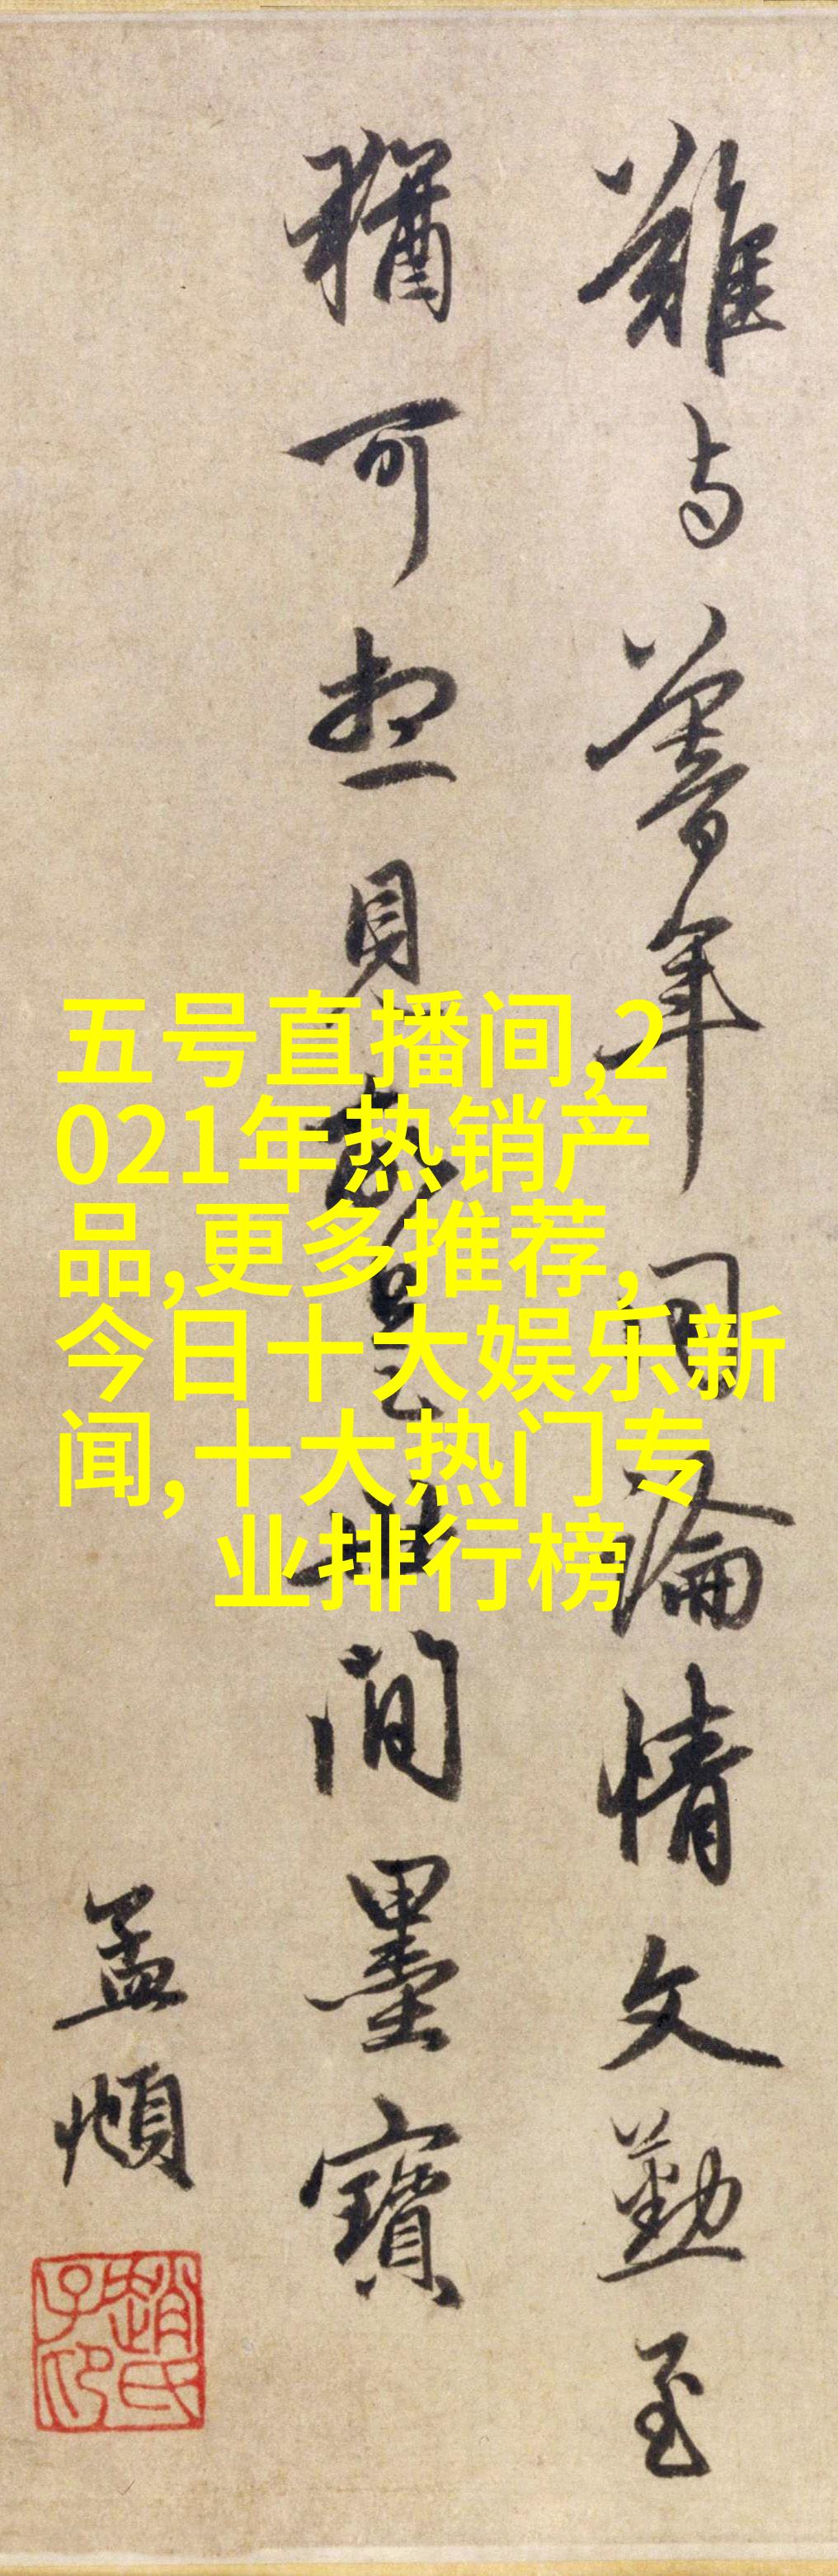 難与暮年同論情文勤至
猶可想見是世間墨寶
孟頫
趙氏子昂
五号直播间,2
021年热销产
品,更多推荐,
今日十大娱乐新
闻,十大热门专
业排行榜